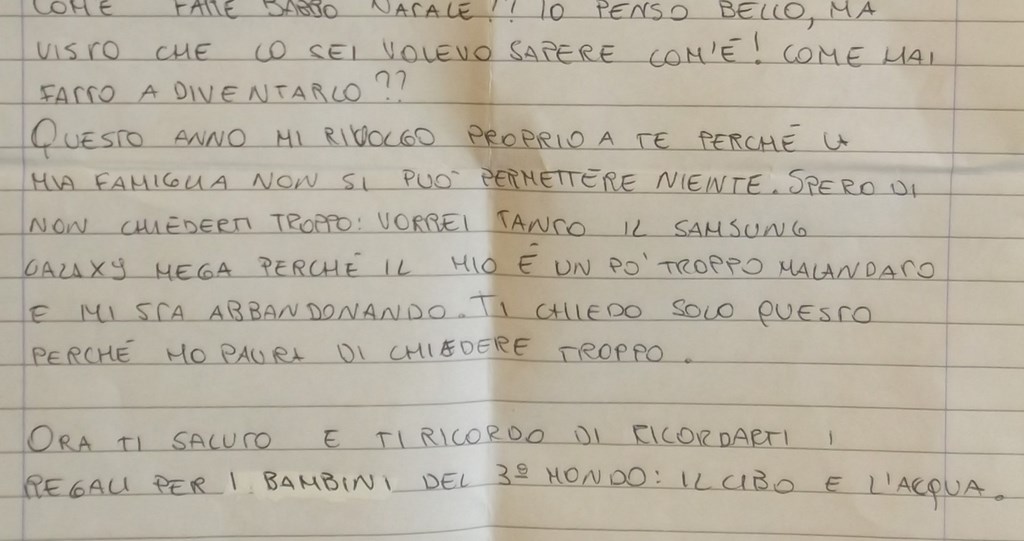 COME FARE BABBO NATALE!? IO PENSO BELLO, MA
VISTO CHE LO SEI VOLEVO SAPERE COM'É! COME MAI
FATTO A DIVENTARLO??
QUESTO ANNO MI RIVOLGO PROPRIO A TE PERCHÉ LA
MIA FAMIGLIA NON SI PUO' PERMETTERE NIENTE. SPERO DI
NON CHIEDERTI TROPPO: VORREI TANTO IL SAMSUNG
GALAXY MEGA PERCHÉ IL MIO É UN PO' TROPPO MALANDATO
E MI STA ABBANDONANDO. TI CHIEDO SOLO QUESTO
PERCHÉ HO PAURA DI CHIEDERE TROPPO.
ORA TI SALUTO E TI RICORDO DI RICORDARTI I
REGALI PER I BAMBINI DEL 3º MONDO: IL CIBO E L'ACQUA.